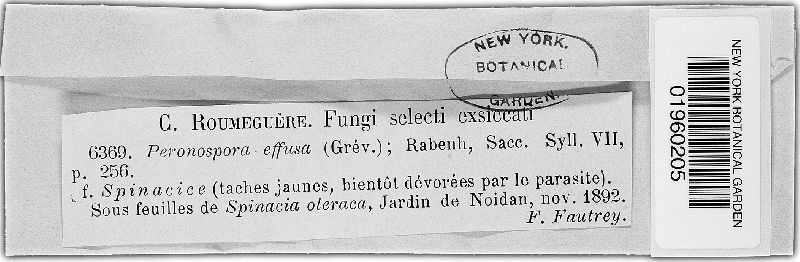 NEW YORK.
BOTANICAL
GARDEN.
C. ROUMEGUÈRE. Fungi selecti exsiccati
6369. Peronospora effusa (Grév.); Rabenh, Sacc. Syll. VII,
p. 256.
f. Spinaciæ (taches jaunes, bientôt dévorées par le parasite).
Sous feuilles de Spinacia oleraca, Jardin de Noidan, nov. 1892.
F. Fautrey.
NEW YORK BOTANICAL GARDEN
01960205